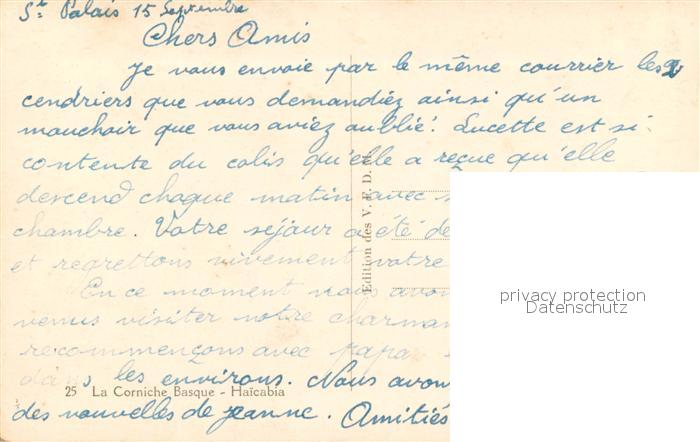 St Palais 15 Septembre
Chers Amis
Je vous envoie par le même courrier les 2
cendriers que vous demandiez ainsi qu'un
mouchoir que vous aviez oublié. Lucette est si
contente du colis qu'elle a reçue qu'elle
descend chaque matin avec s
chambre. Votre séjour a été de
et regrettons vivement votre
En ce moment nous avon
venus visiter notre charman
recommençons avec papa
dans les environs. Nous avon
des nouvelles de jeanne. Amitiés
25 La Corniche Basque - Haïcabia
Edition des V. F. D. M.
privacy protection
Datenschutz